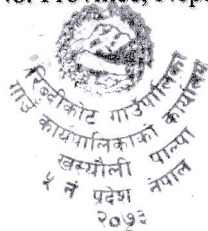 Province, Nep
रिब्दीकोट गाउँपालिका
गाउँ कार्यपालिकाको कार्यालय
खस्यौली पाल्पा
५ नं प्रदेश नेपाल
२०७३